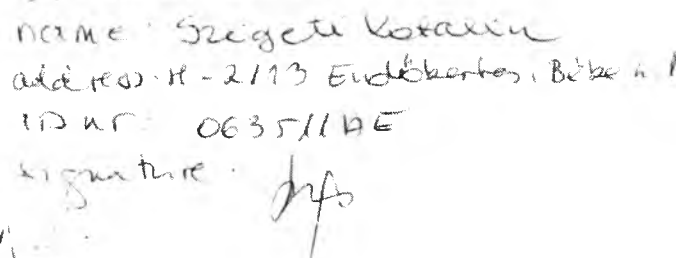 name: Szigeti Katalin
address: H-2113 Erdőkertes, Béke u.
ID nr: 063511AE
signature: